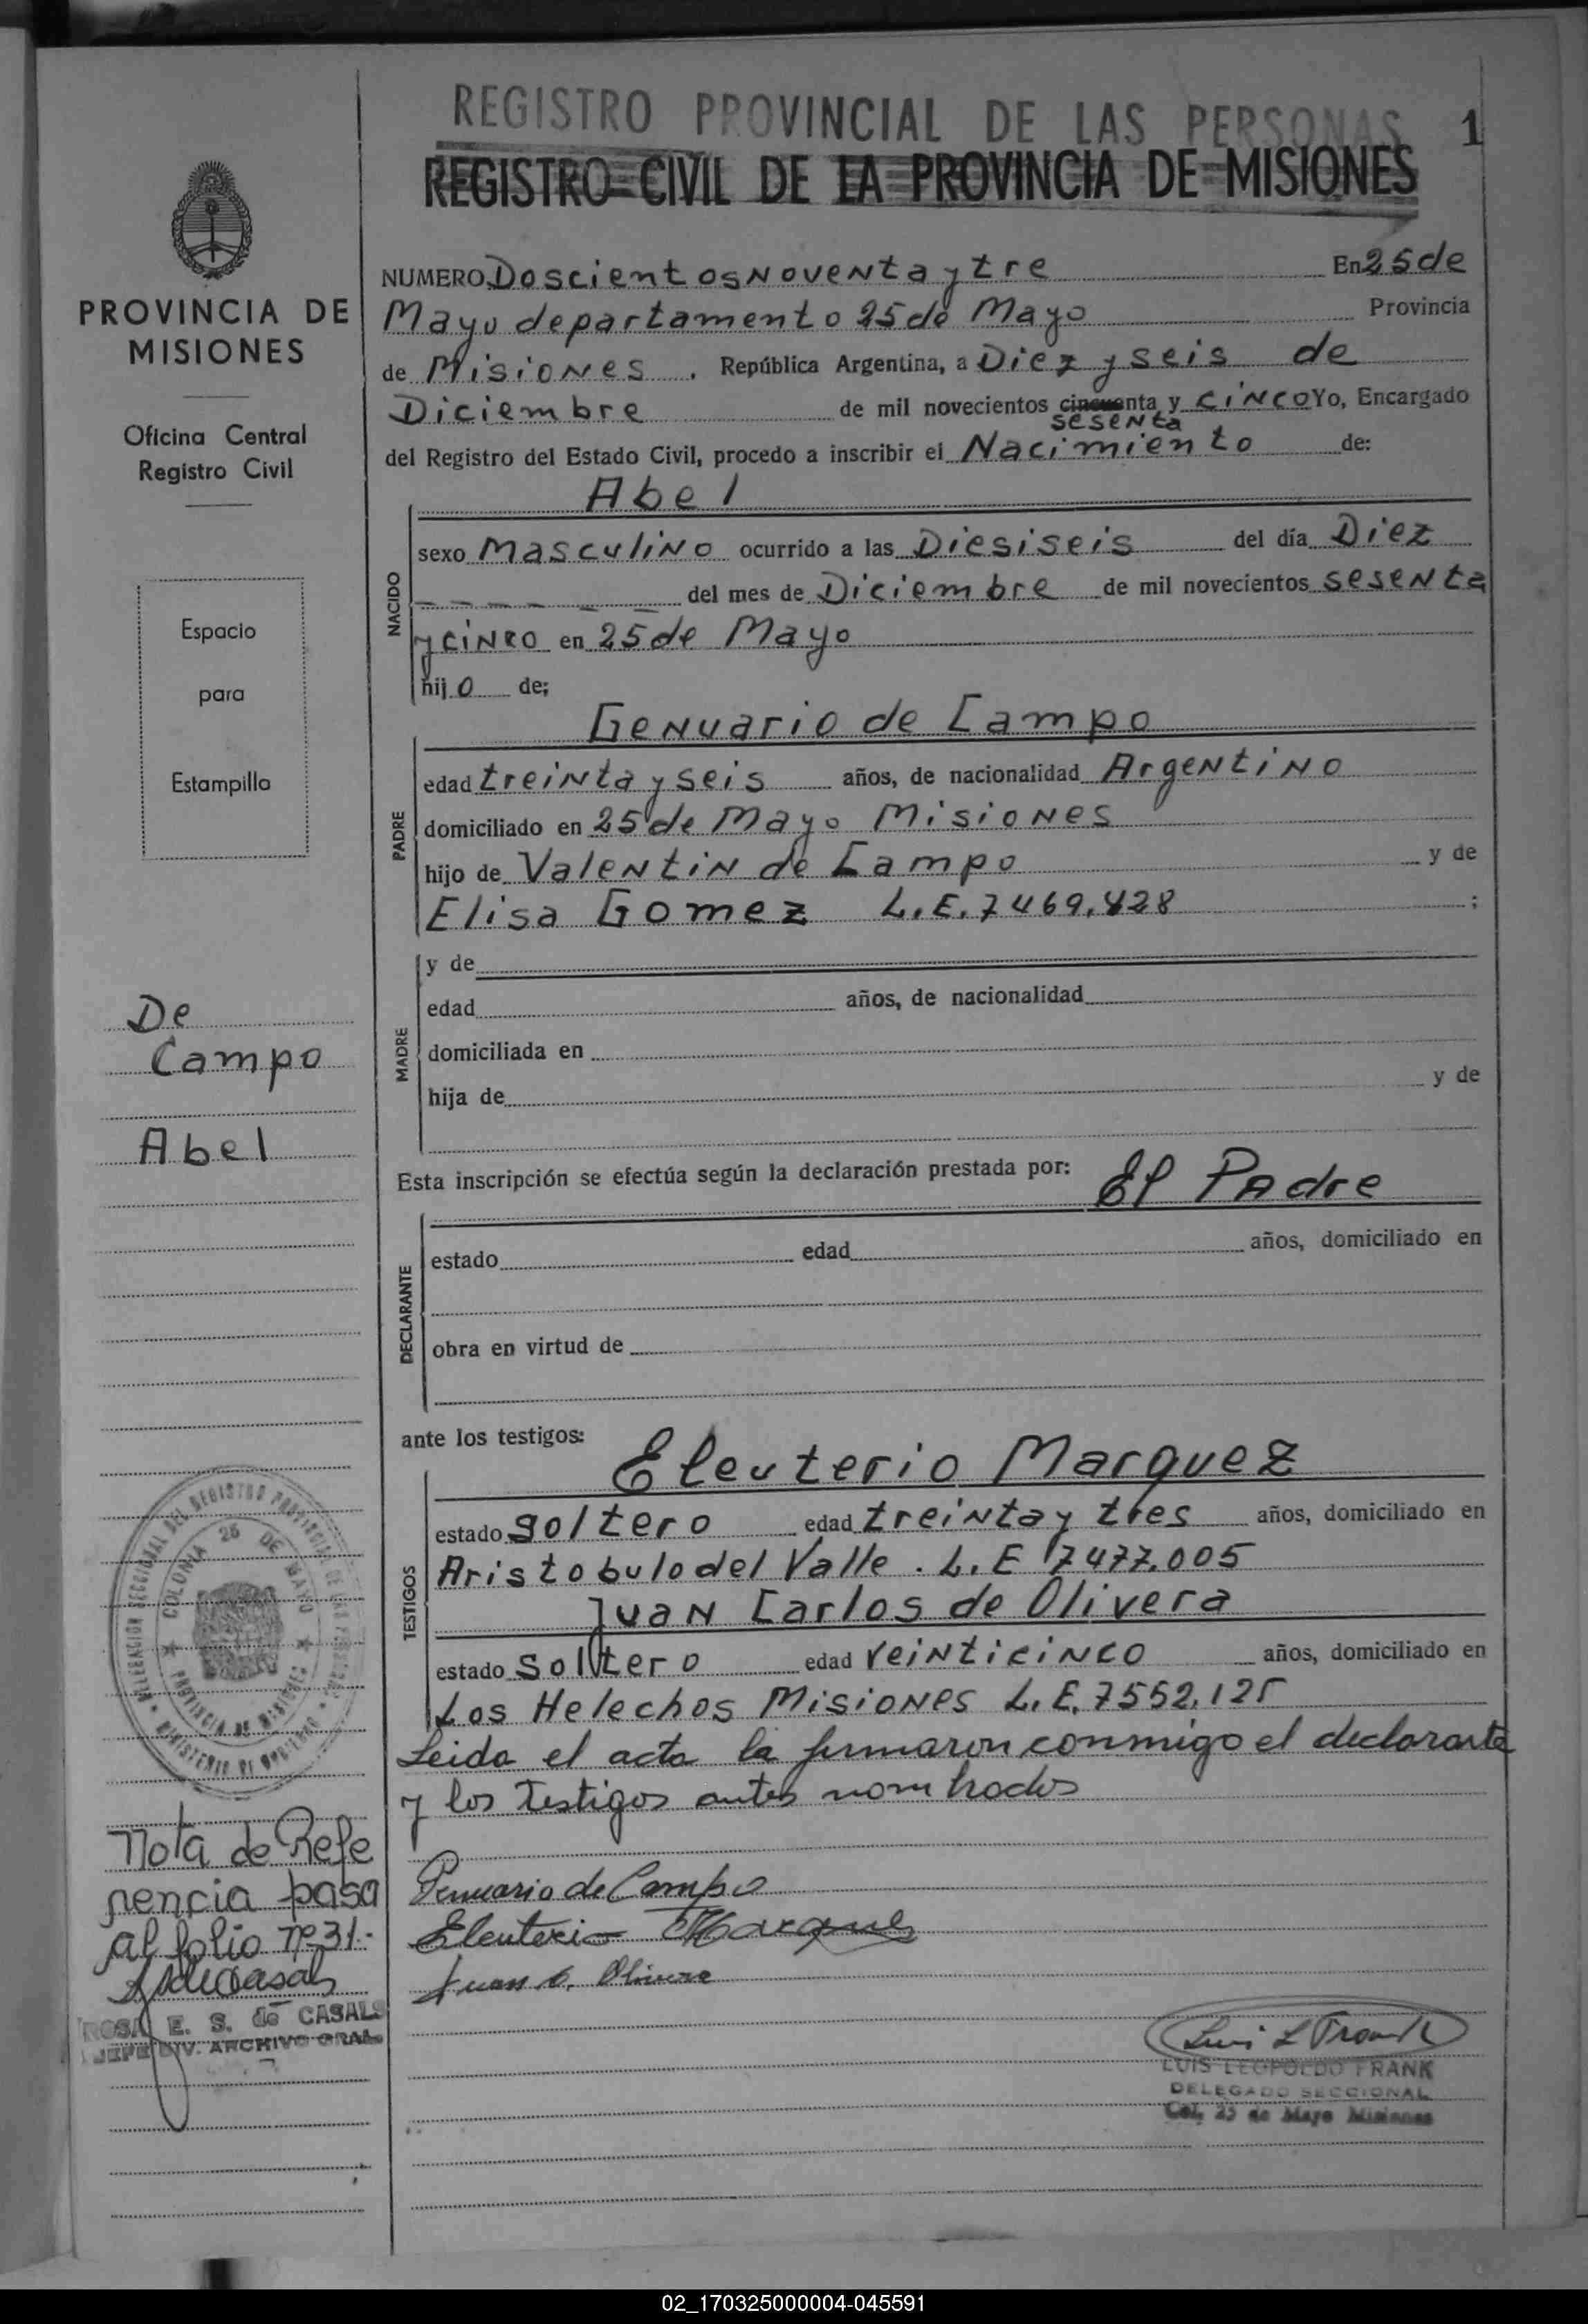 REGISTRO PROVINCIAL DE LAS PERSONAS
1
REGISTRO CIVIL DE LA PROVINCIA DE MISIONES
PROVINCIA DE
MISIONES
Oficina Central
Registro Civil
Espacio
para
Estampilla
De
Campo
Abel
DELEGACION SECCIONAL DEL REGISTRO PROVINCIAL DE LAS PERSONAS
COLONIA 25 DE MAYO
PROVINCIA DE MISIONES
MINISTERIO DE GOBIERNO
Nota de Refe
rencia pasa
al folio nº 31.-
ROSA E. S. de CASALS
JEFE DIV. ARCHIVO GRAL.
NUMERO Doscientos Noventa y tre En 25 de
Mayo departamento 25 de Mayo Provincia
de Misiones . República Argentina, a Diez y seis de
Diciembre de mil novecientos cincuenta y CINCO Yo, Encargado
sesenta
del Registro del Estado Civil, procedo a inscribir el Nacimiento de:
NACIDO
Abel
sexo Masculino ocurrido a las Diesiseis del día Diez
del mes de Diciembre de mil novecientos sesenta
y cinco en 25 de Mayo
hijo de;
PADRE
Genuario de Campo
edad treinta y seis años, de nacionalidad Argentino
domiciliado en 25 de Mayo Misiones
hijo de Valentin de Campo y de
Elisa Gomez L.E. 7469.428 ;
MADRE
y de
edad años, de nacionalidad
domiciliada en
hija de y de
Esta inscripción se efectúa según la declaración prestada por: El Padre
DECLARANTE
estado edad años, domiciliado en
obra en virtud de
ante los testigos:
TESTIGOS
Eleuterio Marquez
estado soltero edad treinta y tres años, domiciliado en
Aristobulo del Valle . L.E 7477.005
Juan Carlos de Olivera
estado soltero edad veinticinco años, domiciliado en
Los Helechos Misiones L.E. 7552.125
Leida el acta la firmaron conmigo el declarante
y los testigos antes nombrados
Genuario de Campo
Eleuterio Marques
Juan C. Olivera
Luis L Frank
LUIS LEOPOLDO FRANK
DELEGADO SECCIONAL
Col. 25 de Mayo Misiones
02_170325000004-045591